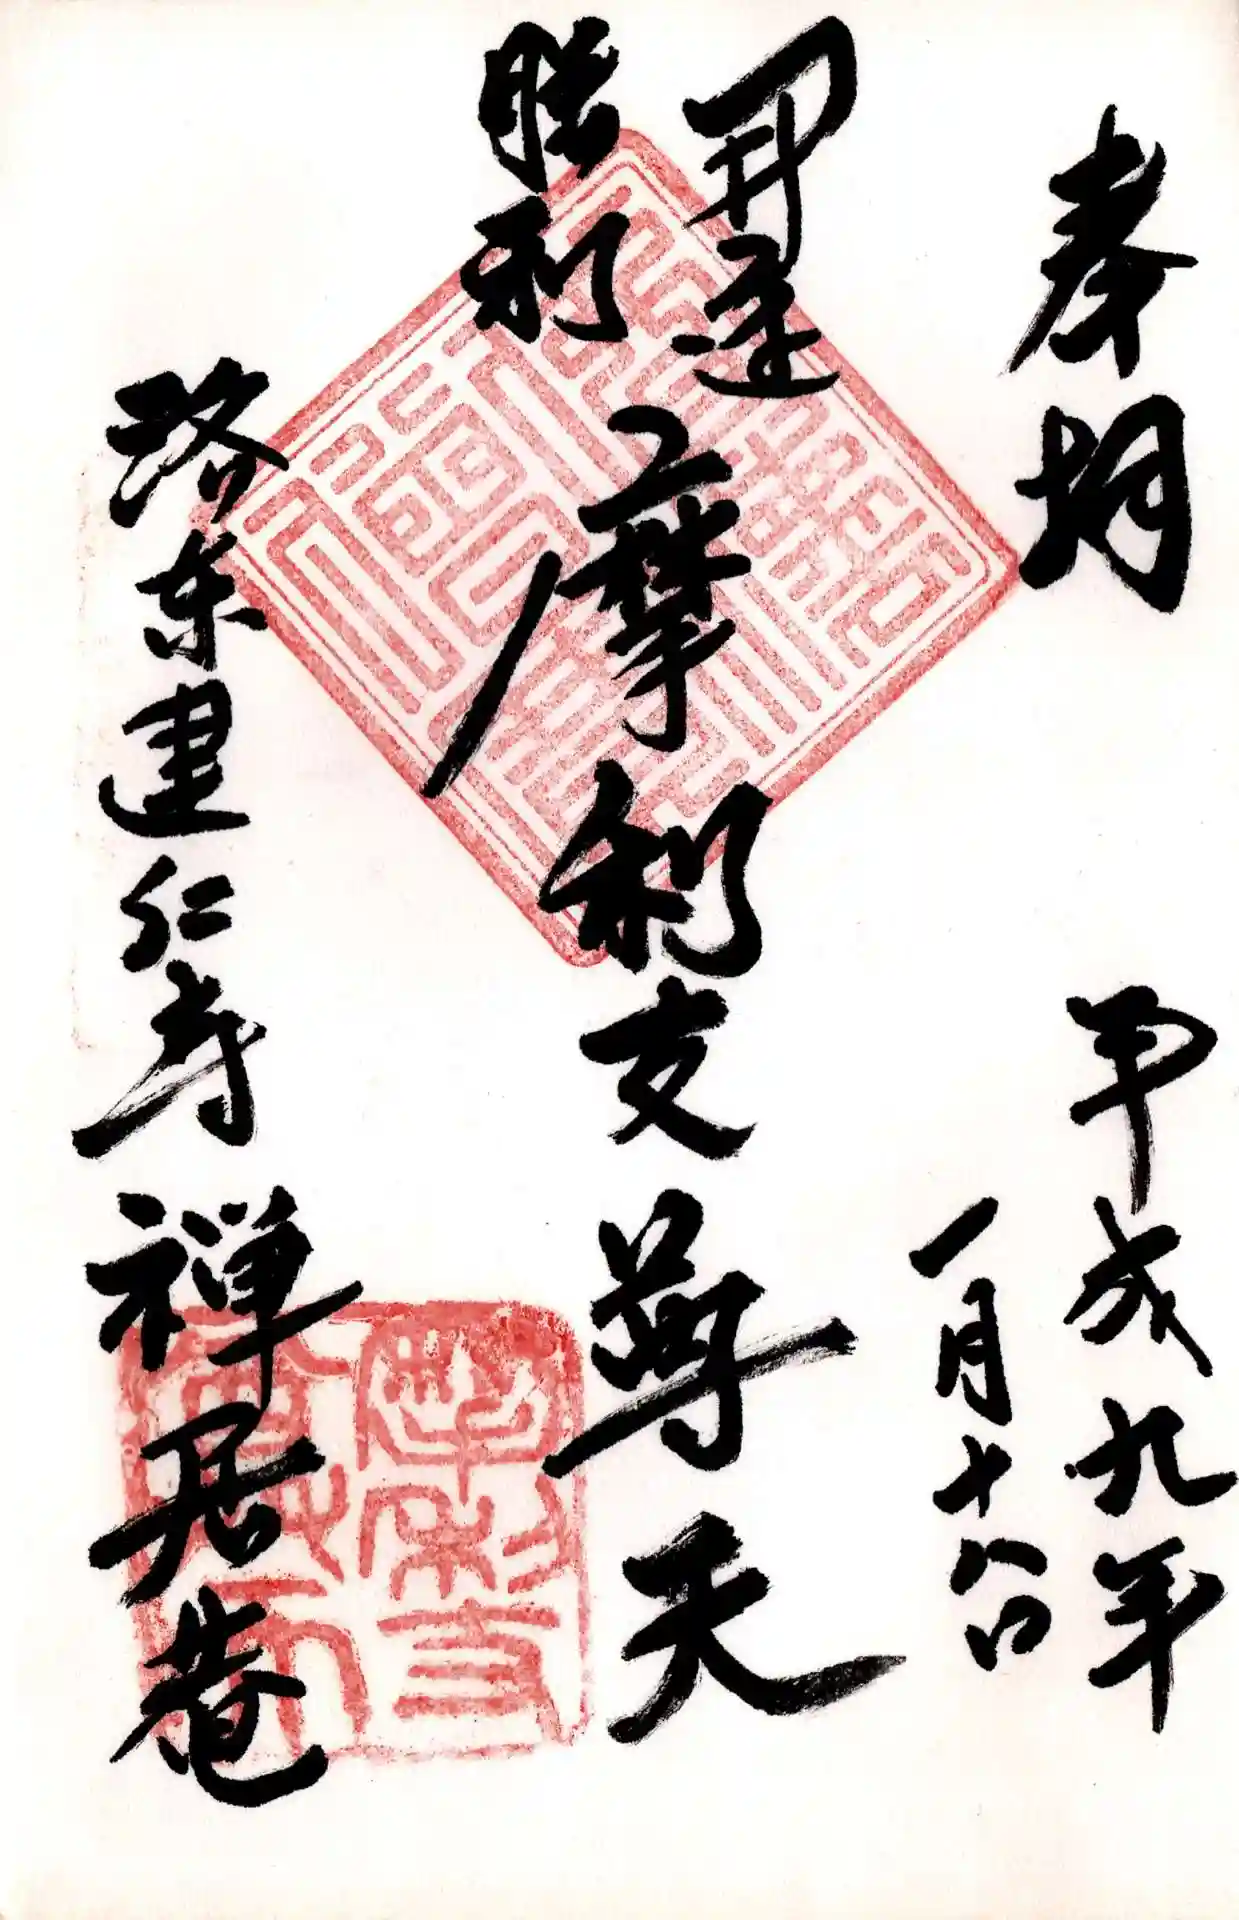 奉拝
平成九年
一月十八日
開運
勝利
摩利支尊天
洛東建仁寺
禅居菴